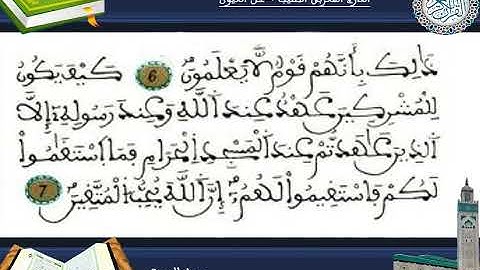 ذَٰلِكَ بِأَنَّهُمْ قَوْمٌ لَّا يَعْلَمُونَ 6 كَيْفَ يَكُونُ
لِلْمُشْرِكِينَ عَهْدٌ عِندَ اَللَّهِ وَعِندَ رَسُولِهِۦٓ إِلَّا
اَلذِينَ عَٰهَدتُّمْ عِندَ اَلْمَسْجِدِ اِلْحَرَامِ فَمَا اَسْتَقَٰمُواْ
لَكُمْ فَاسْتَقِيمُواْ لَهُمُۥٓ إِنَّ اَللَّهَ يُحِبُّ اُلْمُتَّقِينَ 7